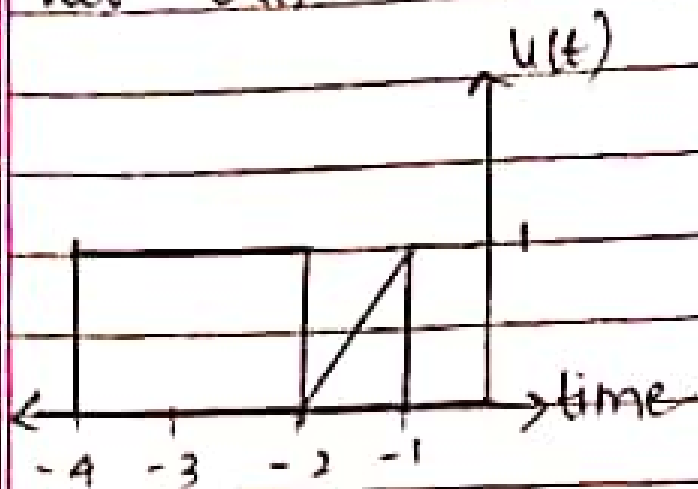 U(t)
1
time
-4 -3 -2 -1